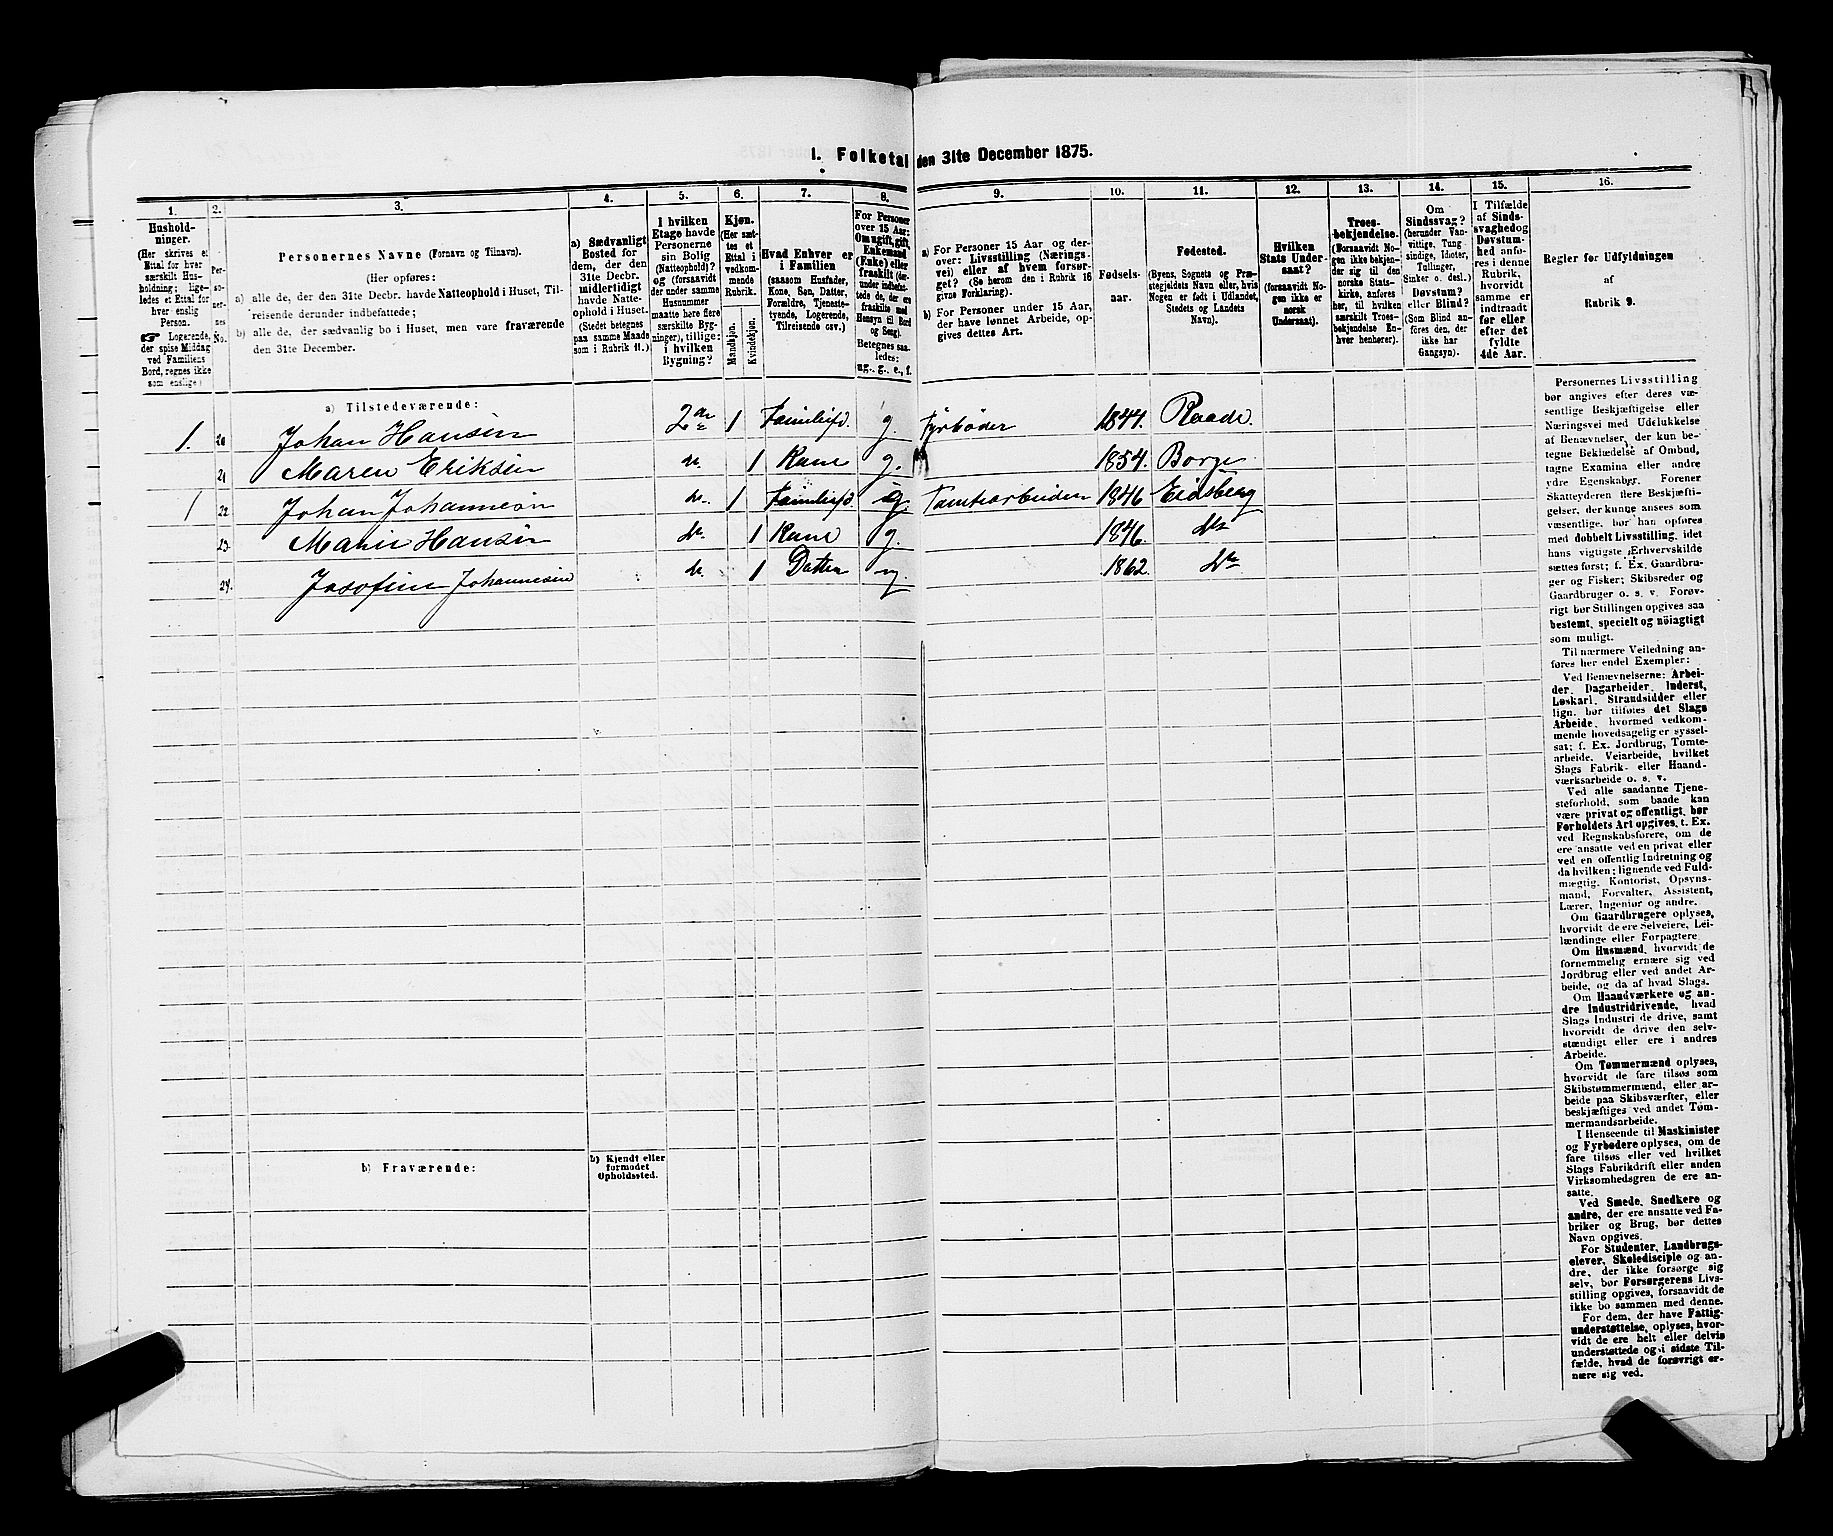 I. Folketal den 31te December 1875.
1.
2.
3.
4.
5.
6.
7.
8.
9.
10.
11.
12.
13.
14.
15.
16.
Hushold-
ninger.
(Her skrives et
Ettal for hver
særskilt Hus-
holdning; lige-
ledes et Ettal for
hver enslig
Person.
☞ Logerende,
der spise Middag
ved Familiens
Bord, regnes ikke
som enslige)
Per-
so-
ner-
nes
No.
Personernes Navne (Fornavn og Tilnavn).
(Her opføres:
a) alle de, der den 31te Decbr. havde Natteophold i Huset, Til-
reisende derunder indbefattede;
b) alle de, der sædvanlig bo i Huset, men vare fraværende
den 31te December.
a) Sædvanligt
Bosted for
dem, der den
31te Decbr.
midlertidigt
havde Natte-
ophold i Huset.
(Stedet betegnes
paa samme Maade
som i Rubrik 11.)
I hvilken
Etage havde
Personerne
sin Bolig
(Natteophold)?
og (forsaavidt
der under samme
Husnummer
maatte høre flere
særskilte Byg-
ninger), tillige:
i hvilken
Bygning?
Kjøn.
(Her sæt-
tes et
Ettal i
vedkom-
mende
Rubrik.
Mandkjøn.
Kvindekjøn.
Hvad Enhver er
i Familien
(saasom Husfader,
Kone, Søn, Datter,
Forældre, Tjeneste-
tyende, Logerende,
Tilreisende osv.)
For Personer
over 15 Aar:
Om ugift, gift,
Enkemand
(Enke) eller
fraskilt (der-
under indbefat-
tede de, der ere
fraskilte med
Hensyn til Bord
og Seng).
Betegnes saa-
ledes:
ug., g., e., f.
a) For Personer 15 Aar og der-
over: Livsstilling (Nærings-
vei) eller af hvem forsør-
get? (Se herom den i Rubrik 16
givne Forklaring).
b) For Personer under 15 Aar,
der have lønnet Arbeide, op-
gives dettes Art.
Fødsels-
aar.
Fødested.
(Byens, Sognets og Præ-
stegjeldets Navn eller, hvis
Nogen er født i Udlandet,
Stedets og Landets
Navn).
Hvilken
Stats Under-
saat?
(forsaavidt No-
gen ikke er
norsk
Undersaat).
Troes-
bekjendelse.
(Forsaavidt No-
gen ikke bekjen-
der sig til den
norske Stats-
kirke, anføres
her, til hvilken
særskilt Troes-
bekjendelse En-
hver henhører).
Om
Sindssvag?
(herunder Van-
vittige, Tung-
sindige, Idioter,
Tullinger,
Sinker o. desl.)
Døvstum?
eller Blind?
(Som Blind an-
føres den, der
ikke har
Gangsyn).
I Tilfælde
af Sinds-
svaghed og
Døvstum-
hed anfø-
res i denne
Rubrik,
hvorvidt
samme er
indtraadt
før eller
efter det
fyldte
4de Aar.
Regler for Udfyldningen
af
Rubrik 9.
a) Tilstedeværende:
1. 20 Johan Hansen 2den 1 Familiefd. g. Fyrbøder 1844. Raade.
21 Maren Eriksen do. 1 Kone g. 1854. Borge
1 22 Johan Johannesen do. 1 Familiefd. g Tomtearbeider 1846 Eidsberg
23 Marie Hansen do. 1 Kone g. 1846. do
24. Josefine Johannesen do. 1 Datter ug. 1862. do
b) Fraværende:
b) Kjendt eller
formodet
Opholdssted.
Personernes Livsstilling
bør angives efter deres væ-
sentlige Beskjæftigelse eller
Næringsvei med Udelukkelse
af Benævnelser, der kun be-
tegne Beklædelse af Ombud,
tagne Examina eller andre
ydre Egenskaber. Forener
Skatteyderen flere Beskjæfti-
gelser, der kunne ansees som
væsentlige, bør han opføres
med dobbelt Livsstilling, idet
hans vigtigste Erhvervskilde
sættes først; f. Ex. Gaardbru-
ger og Fisker; Skibsreder og
Gaardbruger o. s. v. Forøv-
rigt bør Stillingen opgives saa
bestemt, specielt og nöiagtigt
som muligt.
Til nærmere Veiledning an-
føres her endel Exempler:
Ved Benævnelserne: Arbei-
der, Dagarbeider, Inderst,
Løskarl, Strandsidder eller
lign. bør tilføies det Slags
Arbeide, hvormed vedkom-
mende hovedsagelig er syssel-
sat; f. Ex. Jordbrug, Tomte-
arbeide, Veiarbeide, hvilket
Slags Fabrik- eller Haand-
værksarbeide o. s. v.
Ved alle saadanne Tjene-
steforhold, som baade kan
være privat og offentligt, bør
Forholdets Art opgives, t. Ex.
ved Regnskabsførere, om de
ere ansatte ved en privat eller
ved en offentlig Indretning og
da hvilken; lignende ved Fuld-
mægtig, Kontorist, Opsyns-
mand, Forvalter, Assistent,
Lærer, Ingeniør og andre.
Om Gaardbrugere oplyses,
hvorvidt de ere Selveiere, Lei-
lændinge eller Forpagtere.
Om Husmænd, hvorvidt de
fornemmelig ernære sig ved
Jordbrug eller ved andet Ar-
beide, og da af hvad Slags.
Om Haandværkere og an-
dre Industridrivende, hvad
Slags Industri de drive, samt
hvorvidt de drive den selv-
stændigt eller ere i andres
Arbeide.
Om Tømmermænd oplyses,
hvorvidt de fare tilsøs som
Skibstømmermænd, eller ar-
beide paa Skibsværfter, eller
beskjæftiges ved andet Tøm-
mermandsarbeide.
I Henseende til Maskinister
og Fyrbødere oplyses, om de
fare tilsøs eller ved hvilket
Slags Fabrikdrift eller anden
Virksomhedsgren de ere an-
satte.
Ved Smede, Snedkere og
andre, der ere ansatte ved Fa-
briker og Brug, bør dettes
Navn opgives.
For Studenter, Landbrugs-
elever, Skoledisciple og an-
dre, der ikke forsørge sig
selv, bør Forsørgerens Livs-
stilling opgives, forsaavidt de
ikke bo sammen med denne.
For dem, der have Fattig-
understøttelse, oplyses, hvor-
vidt de ere helt eller delvis
understøttede og i sidste Til-
fælde, hvad de forøvrigt er-
nære sig ved.